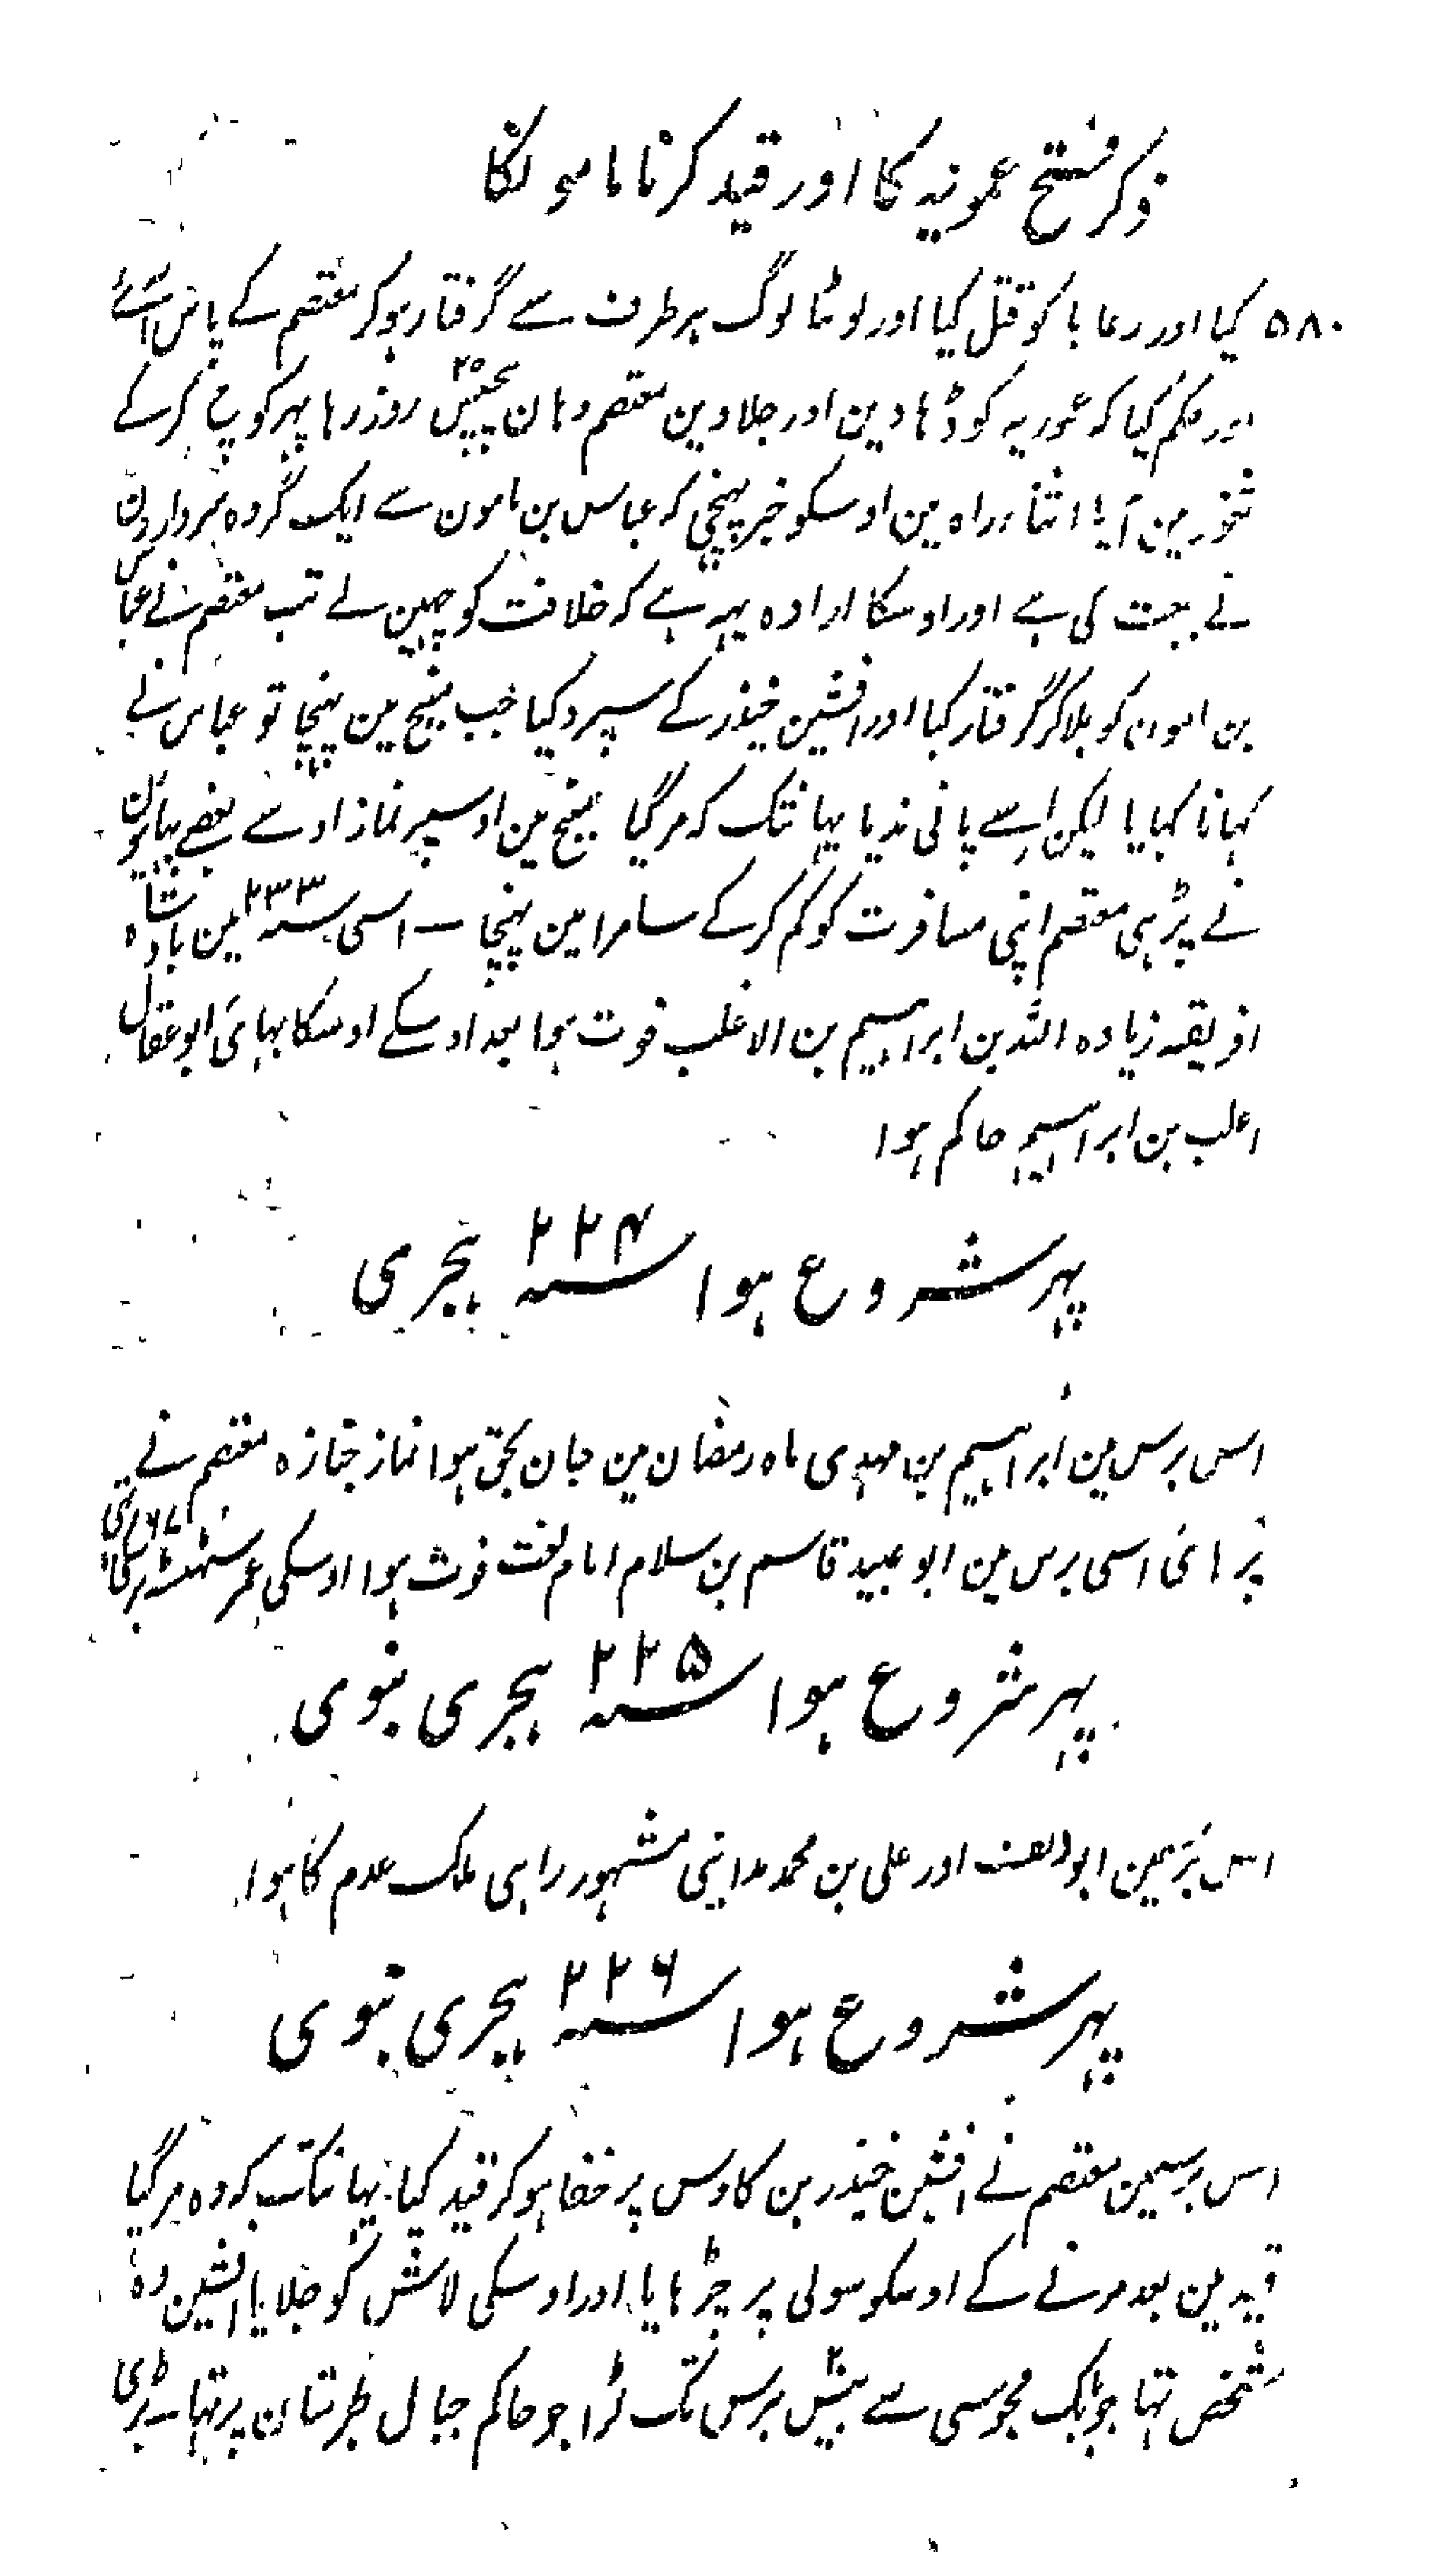 ذکر فتح عمونیہ کا اور قید کرنا مامونکا
۵۸۰ کیا اور رعایا کو قتل کیا اور لوٹا لوگ ہر طرف سے گرفتار ہوکر معتصم کے پاس آئے
اور حکم کیا کہ عموریہ کو ڈھا دین اور جلا دین معتصم وہان پچیس ۲۵ روز رہا پہر کوچ کرکے
ثغور مین آیا اثناء راہ مین اوسکو خبر پہنچی کہ عباس بن مامون سے ایک گروہ سردارون
نے بیعت کی ہے اور اوسکا ارادہ یہہ ہے کہ خلافت کو چہین لے تب معتصم نے عباس
بن مامون کو بلاکر گرفتار کیا اور افشین خیذر کے سپرد کیا جب منبج مین پہنچا تو عباس نے
کہانا کہایا لیکن اسے پانی ندیا یہانتک کہ مرگیا منبج مین اوسپر نماز اوسکے بعضے بہائیون
نے پڑہی معتصم اپنی مسافرت کو کم کرکے سامرا مین پہنچا ـ اسی سنہ ۲۳۳ مین بادشاہ
افریقہ زیادہ اللہ بن ابراہیم بن الاغلب فوت ہوا بعد اوسکے اوسکا بہائی ابو عقال
اغلب بن ابراہیم حاکم ہوا
پہر شروع ہوا سنہ ۲۲۴ ہجری
اس برس مین ابراہیم بن مہدی ماہ رمضان مین جان بحق ہوا نماز جنازہ معتصم نے
پڑہائی اسی برس مین ابو عبید قاسم بن سلام امام لغت فوت ہوا اوسکی عمر سڑسٹھ ۶۷ برسکی تھی
پہر شروع ہوا سنہ ۲۲۵ ہجری نبوی
اس برسمین ابو دلف اور علی بن محمد مداینی مشہور راہی ملک عدم کا ہوا
پہر شروع ہوا سنہ ۲۲۶ ہجری نبوی
اس برسمین معتصم نے افشین خیذر بن کاوس پر خفا ہوکر قید کیا یہانتک کہ وہ مرگیا
قید مین بعد مرنے کے اوسکو سولی پر چڑہایا اور اوسکی لاش کو جلایا افشین وہ
شخص تہا جو بابک مجوسی سے بیس ۲۰ برس تک لڑا جو حاکم جبال طبرستان پر تہا بڑی